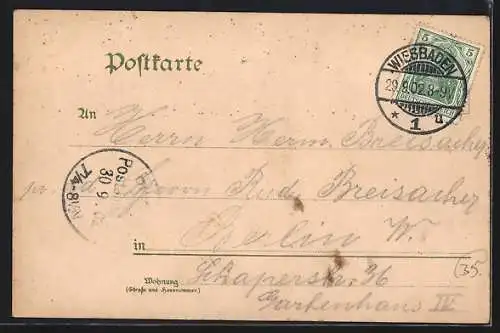 Postkarte
5 5
WIESBADEN
29.9.02.8-9V.
* 1 u
An Herrn Herm. Breisacher
Post
30 9
7¼-8½V
Herrn Rud. Breisacher
in Berlin W.
Wohnung
(Straße und Hausnummer)
Schaperstr. 36
Gartenhaus IV
35.